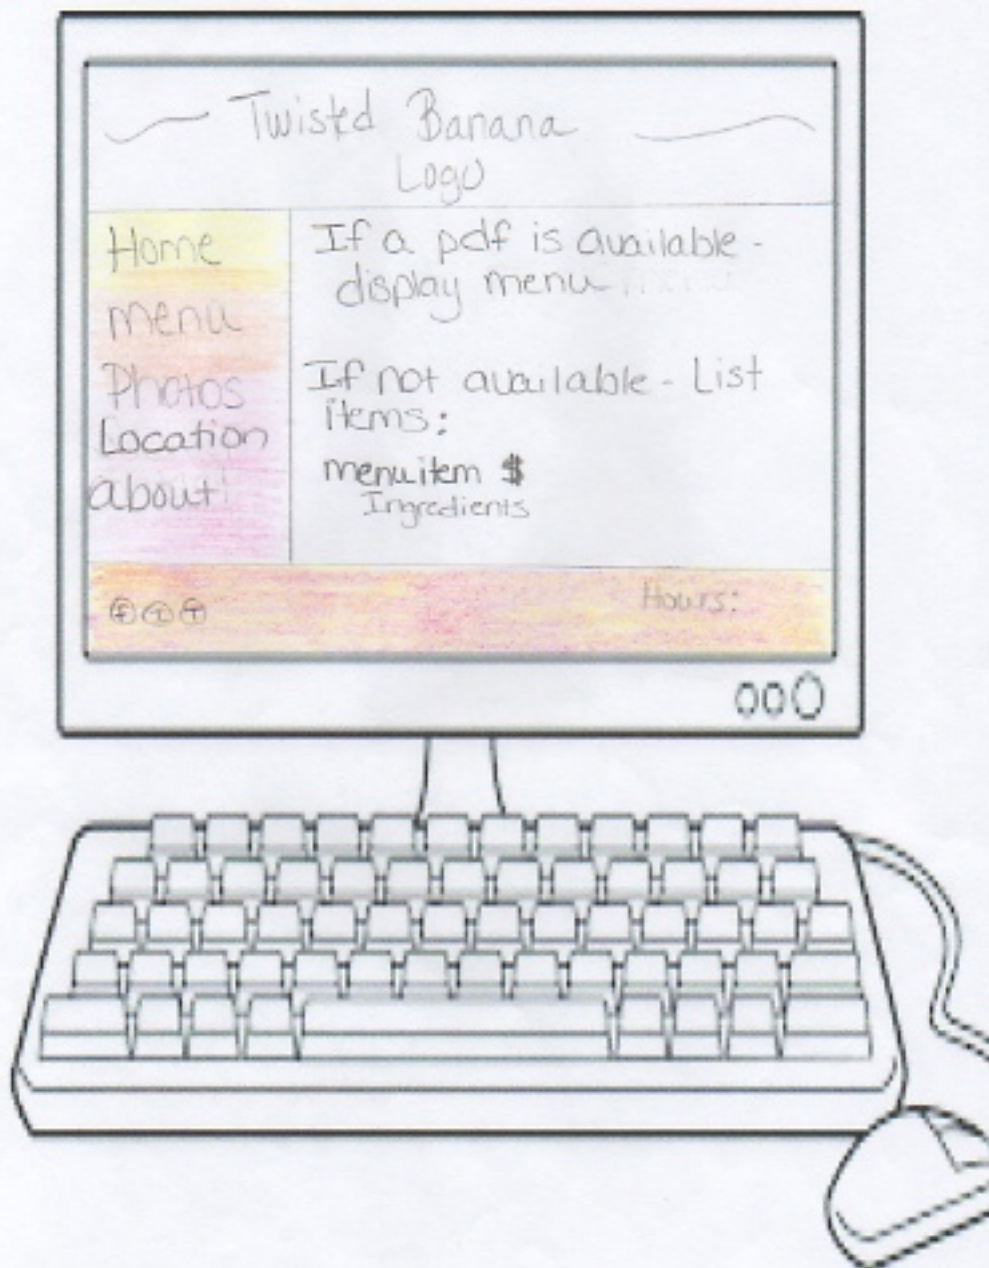 Twisted Banana
Logo
Home
menu
Photos
Location
about
If a pdf is available -
display menu
If not available - List
items:
menuitem $
Ingredients
Hours: